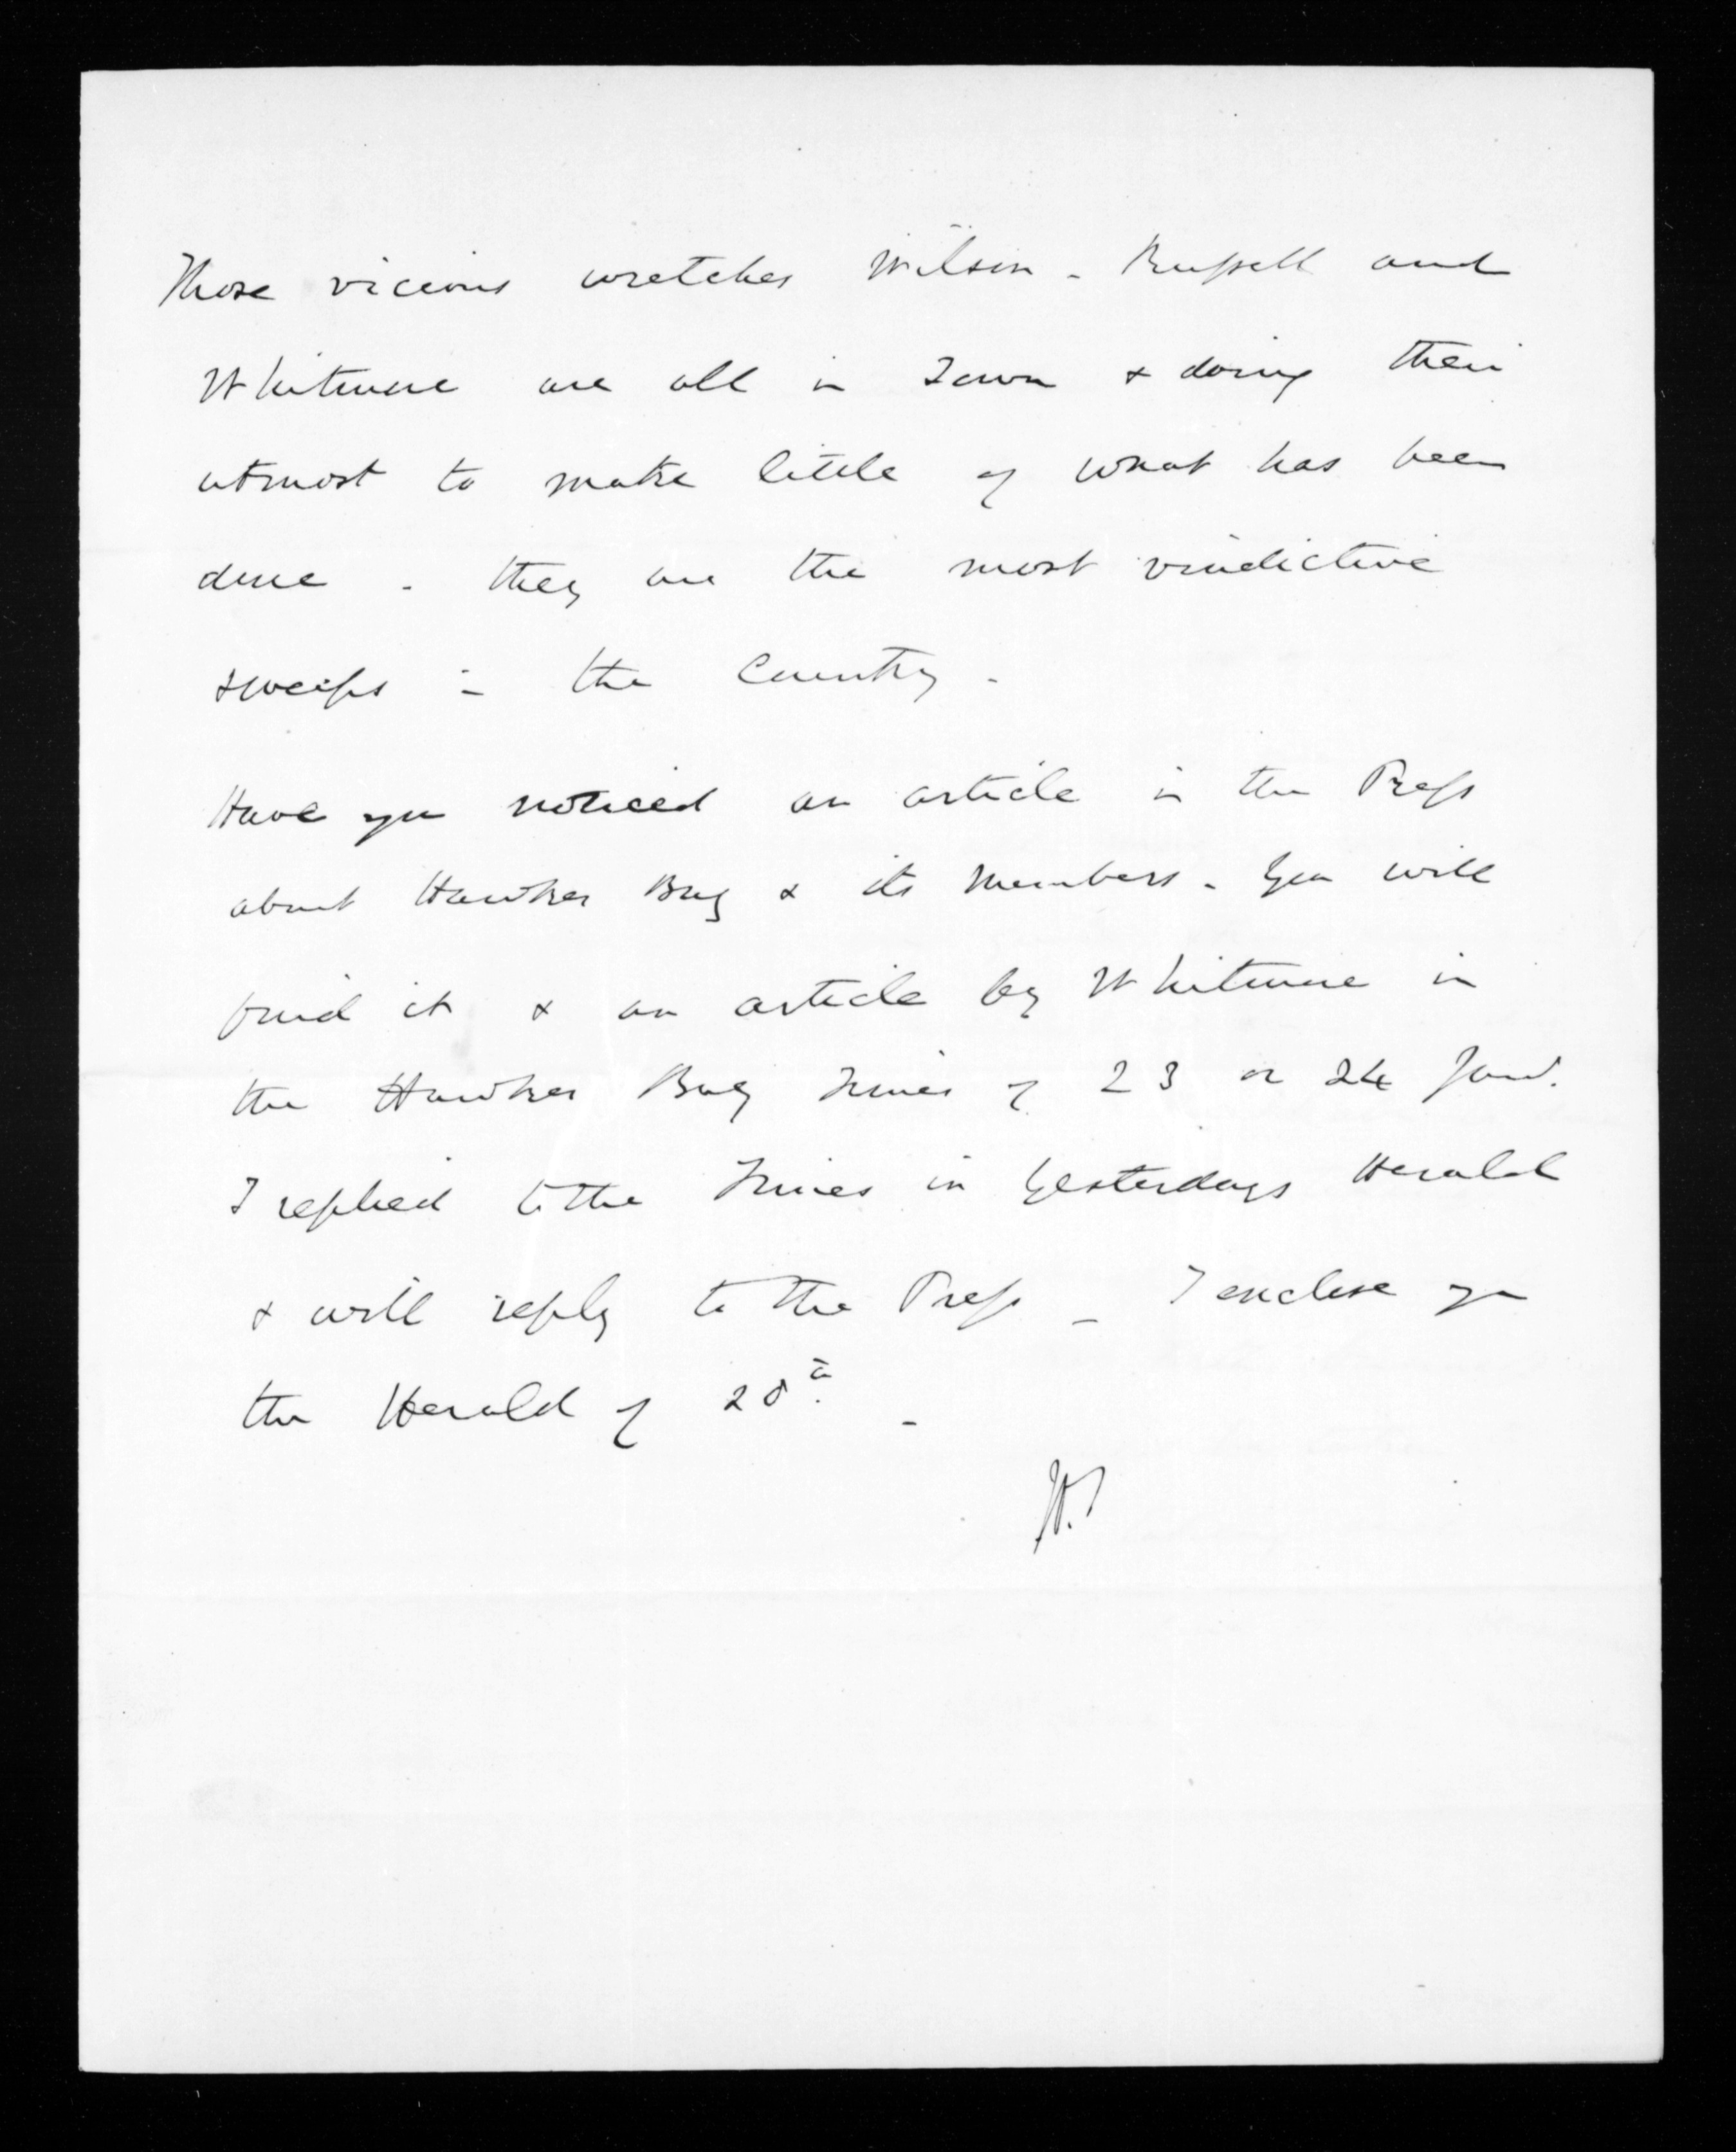 Those vicious wretches Wilson - Russell and
Whitmore are all in Town & doing their
utmost to make little of what has been
done - they are the most vindictive
sweeps in the Country -
Have you noticed an article in the Press
about Hawkes Bay & its Members - You will
find it & an article by Whitmore in
the Hawkes Bay Times of 23 or 24 Jany.
I replied to the Times in Yesterdays Herald
& will reply to the Press _ I enclose you
the Herald of 28th. -